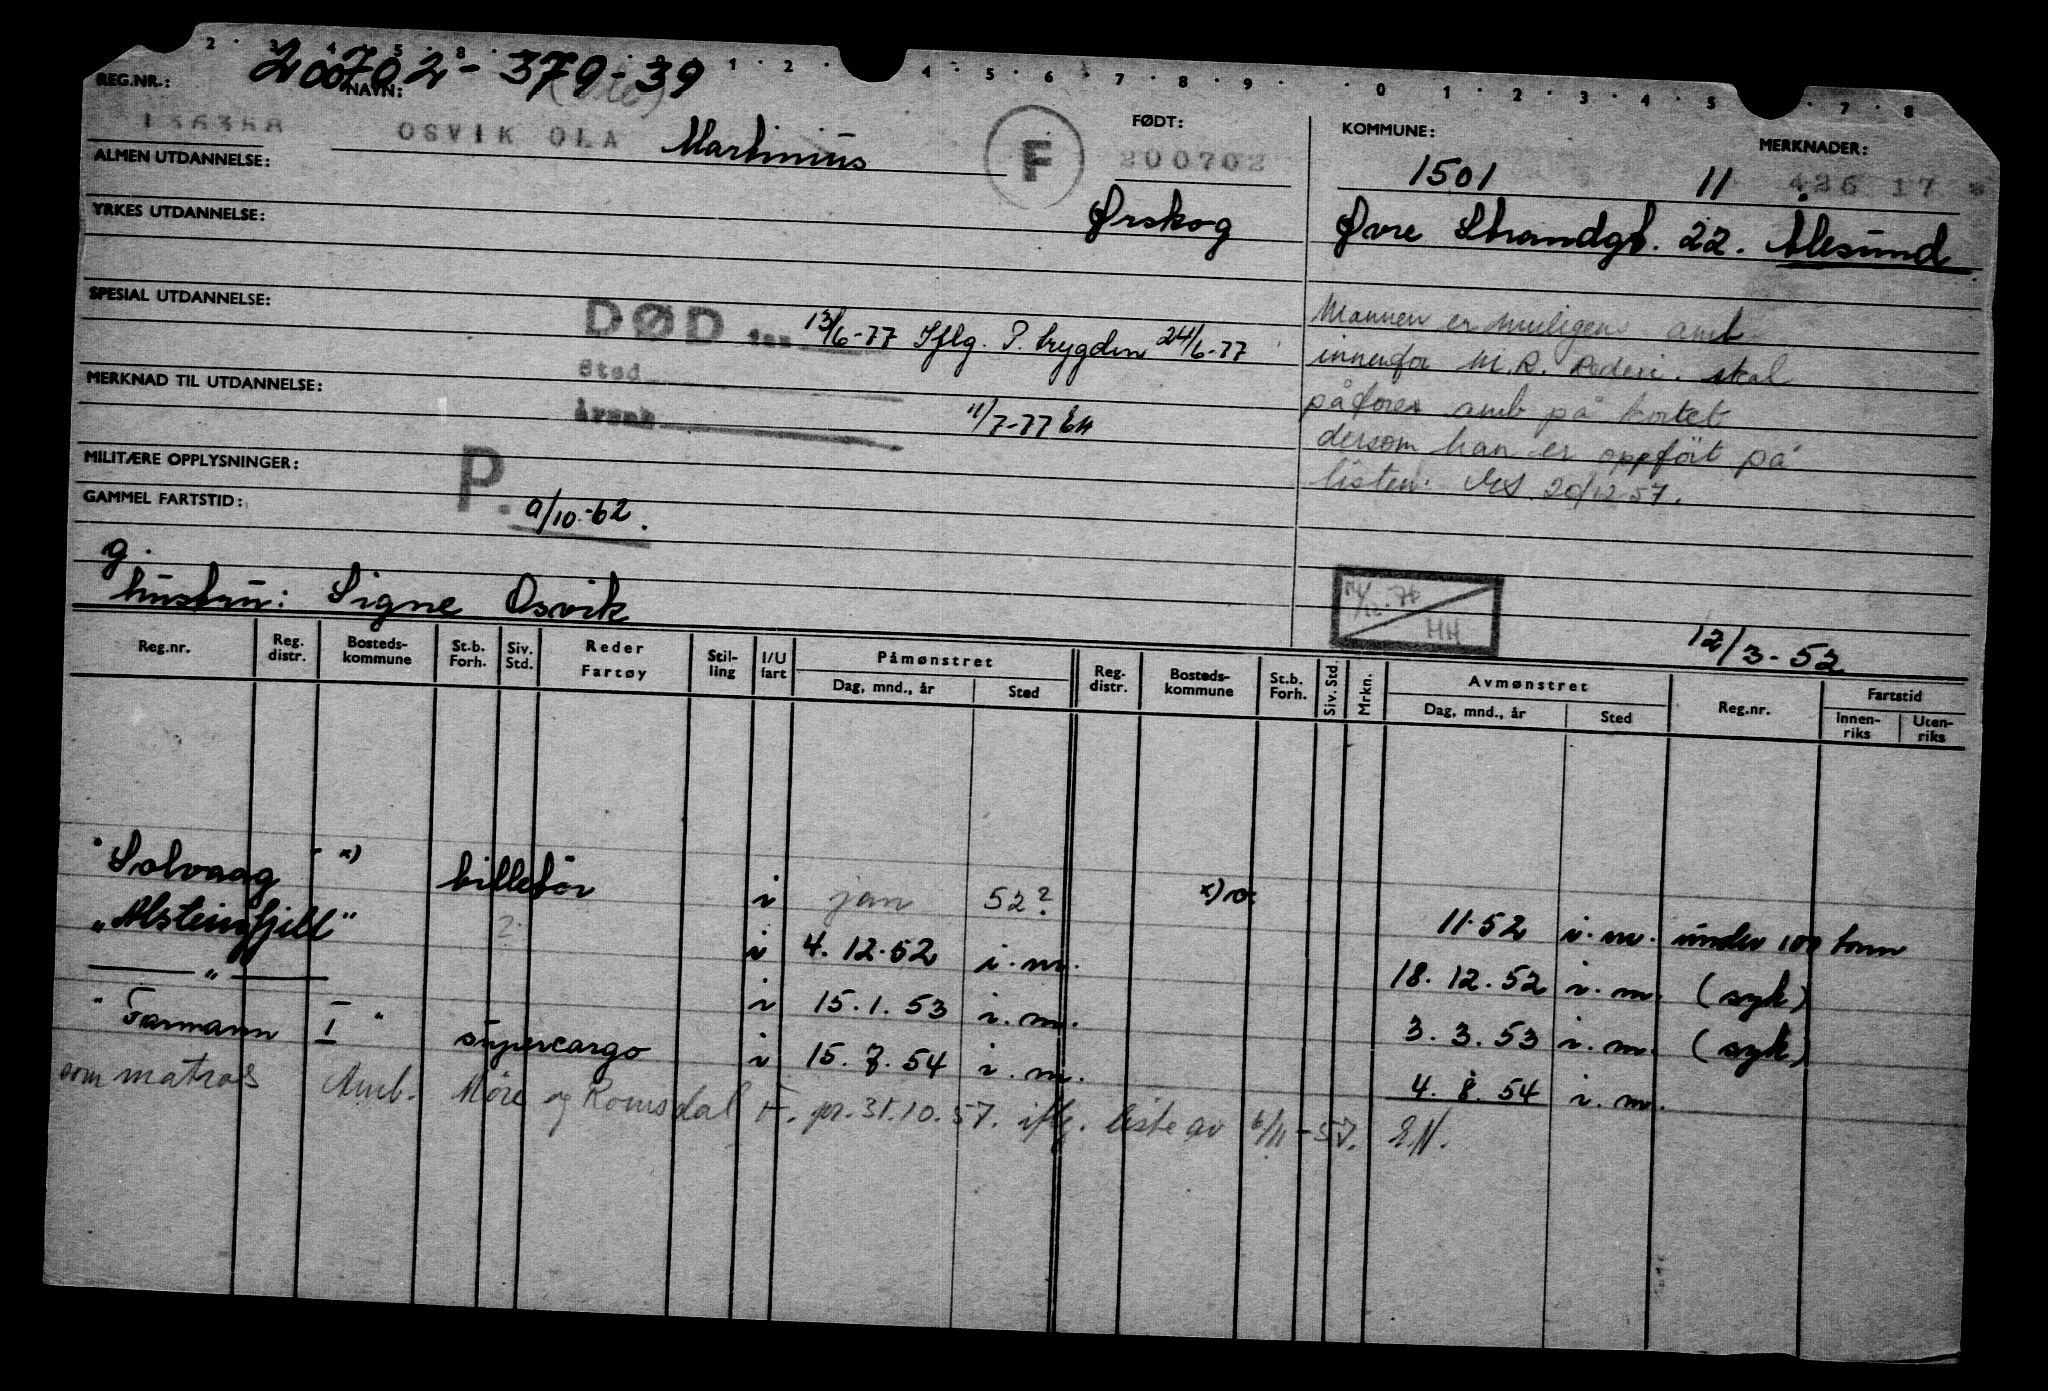 2 . 3 . 4 . 5 . 8 . 1 . 2 . 4 . 5 . 6 . 7 . 8 . 9 . 0 . 1 . 2 . 3 . 4 . 5 . 7 . 8
REG.NR.: 200702 - 379 - 39
NAVN:
136358 OSVIK OLA Martinius F
FØDT: 200702
KOMMUNE: 1501 11
MERKNADER: 426 17
ALMEN UTDANNELSE:
Ørskog
Øvre Strandgt. 22. Ålesund
YRKES UTDANNELSE:
SPESIAL UTDANNELSE:
DØD den 13/6-77 Iflg. P. trygden 24/6-77
Sted
Årsak
11/7-77 EH
MERKNAD TIL UTDANNELSE:
Mannen er muligens amb
innenfor M.R. Rederi. skal
påføres amb på kortet
dersom han er oppført på
listen. 20/12 57.
MILITÆRE OPPLYSNINGER:
P. 9/10-62.
GAMMEL FARTSTID:
g.
hustru: Signe Osvik
HH
12/3-52
Reg.nr. Reg. distr. Bosteds-kommune St.b. Forh. Siv. Std. Reder Fartøy Stil-ling I/U fart Påmønstret Dag, mnd., år Sted Reg. distr. Bosteds-kommune St.b. Forh. Siv. Std. Mrkn. Avmønstret Dag, mnd., år Sted Reg.nr. Fartstid Innen-riks Uten-riks
"Solvaag" x) billettør i jan 52? x) o. 11.52 i.m. under 100 tonn
"Alsteinsfjell" ? i 4.12.52 i.m. 18.12.52 i.m. (syk)
— " — i 15.1.53 i.m. 3.3.53 i.m. (syk)
"Farmann I" supercargo i 15.7.54 i.m. 4.8.54 i.m.
som matros Amb. Møre og Romsdal F. pr. 31.10.57. iflg. liste av 6/11-57. EN.